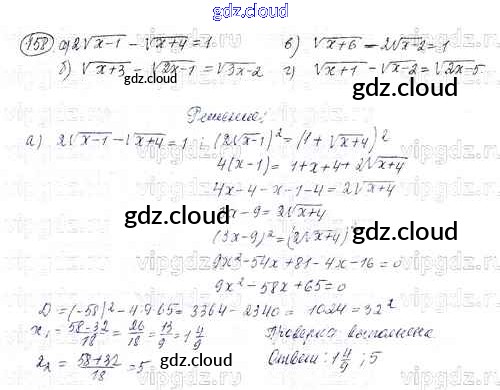 gdz.cloud
158 а) 2√x-1 - √x+4 = 1   в) √x+6 - 2√x-2 = 1
б) √x+3 - √2x-1 = √3x-2   г) √x+1 - √x-2 = √2x-5
gdz.cloud
Решение:
а) 2√x-1 - √x+4 = 1 ; (2√x-1)² = (1+√x+4)²
4(x-1) = 1+x+4+2√x+4
4x-4-x-1-4 = 2√x+4
gdz.cloud
x-9 = 2√x+4
(3x-9)² = (2√x+4)
gdz.cloud
9x²-54x+81-4x-16=0
9x²-58x+65=0
D=(-58)²-4·9·65=3364-2340=1024=32²
x₁ = 58-32/18 = 26/18 = 13/9 = 1 4/9   Проверка выполнена
x₂ = 58+32/18 = 5   Ответ: 1 4/9 ; 5
gdz.cloud